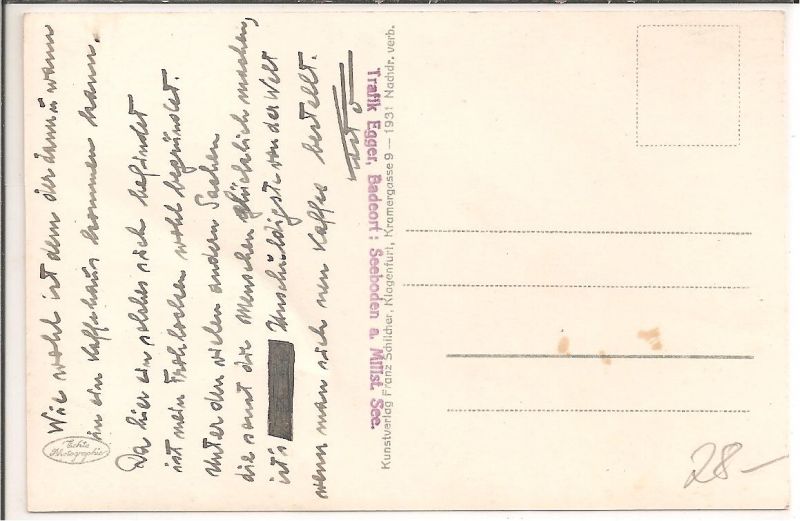 Wie wohl ist dem der dann u wann
in ein Kaffehaus kommen kann.
Da hier ein solches sich befindet
ist mein Frohlocken wohl begründet.
Unter den vielen andern Sachen
die sonst die Menschen glücklich machen,
ist's Unschuldigste von der Welt
wenn man sich nen Kaffee bestellt.
Echte
Photographie
Trafik Egger, Badeort: Seeboden a. Millst. See.
Kunstverlag Franz Schilcher, Klagenfurt, Kramergasse 9 — 1931 Nachdr. verb.
28—